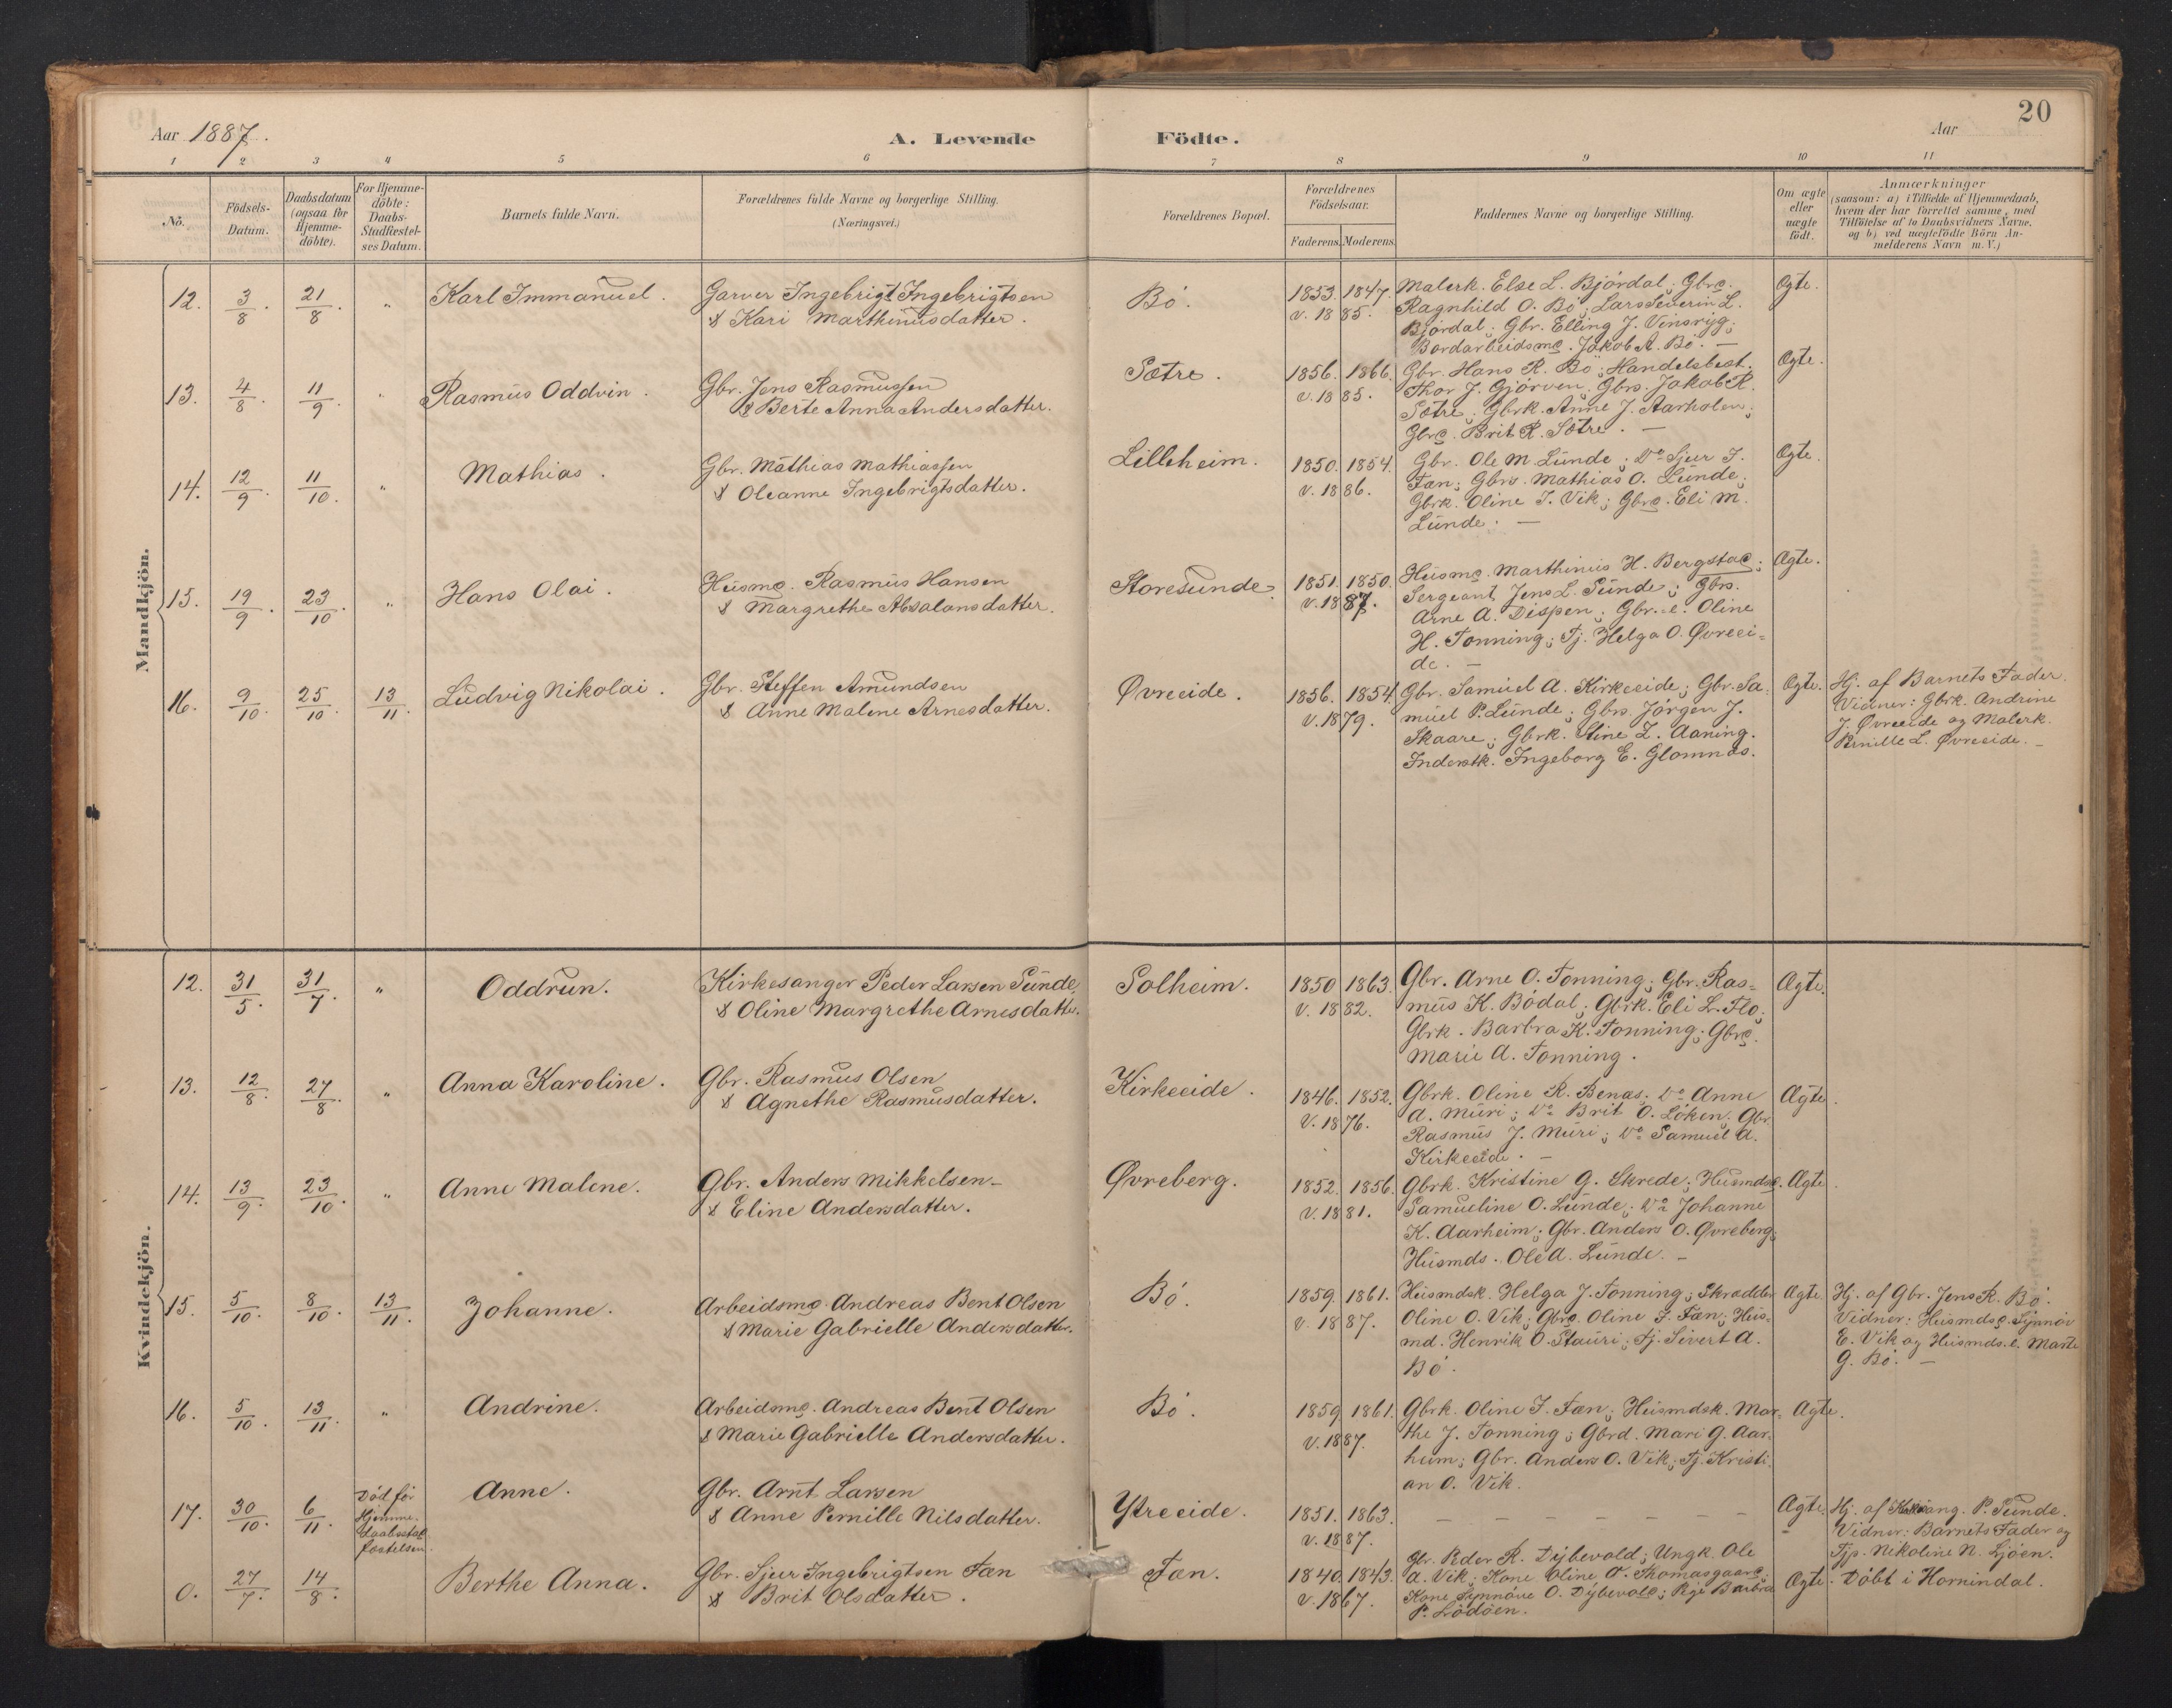 20
Aar 1887.
A. Levende Födte.
Aar
1 2 3 4 5 6 7 8 9 10 11
No.
Födsels-Datum.
Daabsdatum (ogsaa for Hjemme-döbte).
For Hjemme-döbte: Daabs-Stadfæstel-ses Datum.
Barnets fulde Navn.
Forældrenes fulde Navne og borgerlige Stilling.
(Næringsvei.)
Forældrenes Bopæl.
Forældrenes Födselsaar.
Faderens. Moderens.
Faddernes Navne og borgerlige Stilling.
Om ægte eller uægte födt.
Anmærkninger
(saasom: a) i Tilfælde af Hjemmedaab,
hvem der har forrettet samme, med
Tilföielse af to Daabsvidners Navne,
og b) ved uægtefödte Börn An-
melderens Navn m. V.)
Mandkjön.
12. 3/8. 21/8. " Karl Immanuel. Garver Ingebrigt Ingebrigtsen
& Kari Marthinusdatter.
Bö. 1853. 1847.
v. 1885.
Malerk. Else L. Björdal; Gbrd.
Ragnhild O. Bö; Lars Severin L.
Björdal; Gbr. Elling J. Vinsryg;
Bordarbeidsmd. Jakob A. Bö. —
Ægte.
13. 4/8. 11/9. " Rasmus Oddvin. Gbr. Jens Rasmussen
& Berte Anna Andersdatter.
Sætre. 1856. 1866.
v. 1885.
Gbr. Hans R. Bö; Handelsbest.
Thor J. Gjörven; Gbrs. Jakob R.
Sætre; Gbrk. Anne J. Aarholen;
Gbrd. Brit R. Sætre. —
Ægte.
14. 12/9. 11/10. " Mathias. Gbr. Mathias Mathiassen
& Oleanne Ingebrigtsdatter.
Lilleheim. 1850. 1854.
v. 1886.
Gbr. Ole M. Lunde; Do Sjur I.
Fæn; Gbrs. Mathias O. Lunde;
Gbrk. Oline I. Vik; Gbrd. Eli M.
Lunde. —
Ægte.
15. 19/9. 23/10. " Hans Olai. Husmd. Rasmus Hansen
& Margrethe Absalonsdatter.
Storesunde. 1851. 1850.
v. 1887.
Husmd. Marthinus H. Bergstad;
Sergeant Jens L. Sunde; Gbrs.
Arne A. Dispen; Gbr.-e. Oline
H. Tonning; Tj. Helga O. Øvreei-
de. —
Ægte.
16. 9/10. 25/10. 13/11. Ludvig Nikolai. Gbr. Steffen Amundsen
& Anne Malene Arnesdatter.
Øvreeide. 1856. 1854.
v. 1879.
Gbr. Samuel A. Kirkeeide; Gbr. Sa-
muel P. Lunde; Gbrs. Jörgen J.
Skaare; Gbrk. Stine L. Aaning.
Inderstk. Ingeborg E. Glomnæs.
Ægte.
Hj. af Barnets Fader.
Vidner: Gbrk. Andrine
J. Øvreeide og Malerk.
Pernille L. Øvreeide. —
Kvindekjön.
12. 31/5. 31/7. " Oddrun. Kirkesanger Peder Larsen Sunde
& Oline Margrethe Arnesdatter.
Solheim. 1850 1863.
v. 1882.
Gbr. Arne O. Tonning; Gbr. Ras-
mus K. Bödal; Gbrk. Eli L. Flo;
Gbrk. Barbra K. Tonning; Gbrd.
Marie A. Tonning.
Ægte.
13. 12/8. 27/8. " Anna Karoline. Gbr. Rasmus Olsen
& Agnethe Rasmusdatter.
Kirkeeide. 1846. 1852.
v. 1876.
Gbrk. Oline R. Benas; Do Anne
A. Muri; Do Brit O. Löken; Gbr.
Rasmus J. Muri; Do Samuel A.
Kirkeeide. —
Ægte.
14. 13/9. 23/10. " Anne Malene. Gbr. Anders Mikkelsen
& Eline Andersdatter.
Øvreberg. 1852. 1856.
v. 1881.
Gbrk. Kristine G. Skrede; Husmdsd.
Samueline O. Lunde; Do Johanne
K. Aarheim; Gbr. Anders O. Øvreberg;
Husmds. Ole A. Lunde. —
Ægte.
15. 5/10. 8/10. 13/11. Johanne. Arbeidsmd. Andreas Bent Olsen
& Marie Gabrielle Andersdatter.
Bö. 1859. 1861.
v. 1887.
Husmdsk. Helga J. Tonning; Skrædder
Oline O. Vik; Gbrd. Oline I. Fæn; Hus-
md. Henrik O. Stauri; Tj. Sivert A.
Bö.
Ægte.
Hj. af Gbr. Jens R. Bö.
Vidner: Husmdsd. Synnöv
E. Vik og Husmds.e. Marte
G. Bö. —
16. 5/10. 13/11. " Andrine. Arbeidsmd. Andreas Bent Olsen
& Marie Gabrielle Andersdatter.
Bö. 1859 1861.
v. 1887.
Gbrk. Oline I. Fæn; Husmdsk. Mar-
the J. Tonning; Gbrd. Mari G. Aar-
heim; Gbr. Anders O. Vik; Tj. Kristi-
an O. Vik.
Ægte.
17. 30/10. 6/11. Död för Hjemme-daabsstad-fæstelsen. Anne. Gbr. Arnt Larsen
& Anne Pernille Nilsdatter.
Ytreeide. 1851. 1863.
v. 1887.
— — — — — —
Ægte.
Hj. af Kirkesang. P. Sunde.
Vidner: Barnets Fader og
Tjp. Nikoline N. Ljöen.
0. 27/7. 14/8. Berthe Anna. Gbr. Sjur Ingebrigtsen Fæn
& Brit Olsdatter.
Fæn. 1840. 1843.
v. 1867.
Gbr. Peder R. Dybevold; Ungk. Ole
A. Vik; Kone Oline O. Thomasgaard;
Kone Synnöve O. Dybevold; Pige Barbra
P. Lödöen.
Ægte.
Döbt i Hornindal.